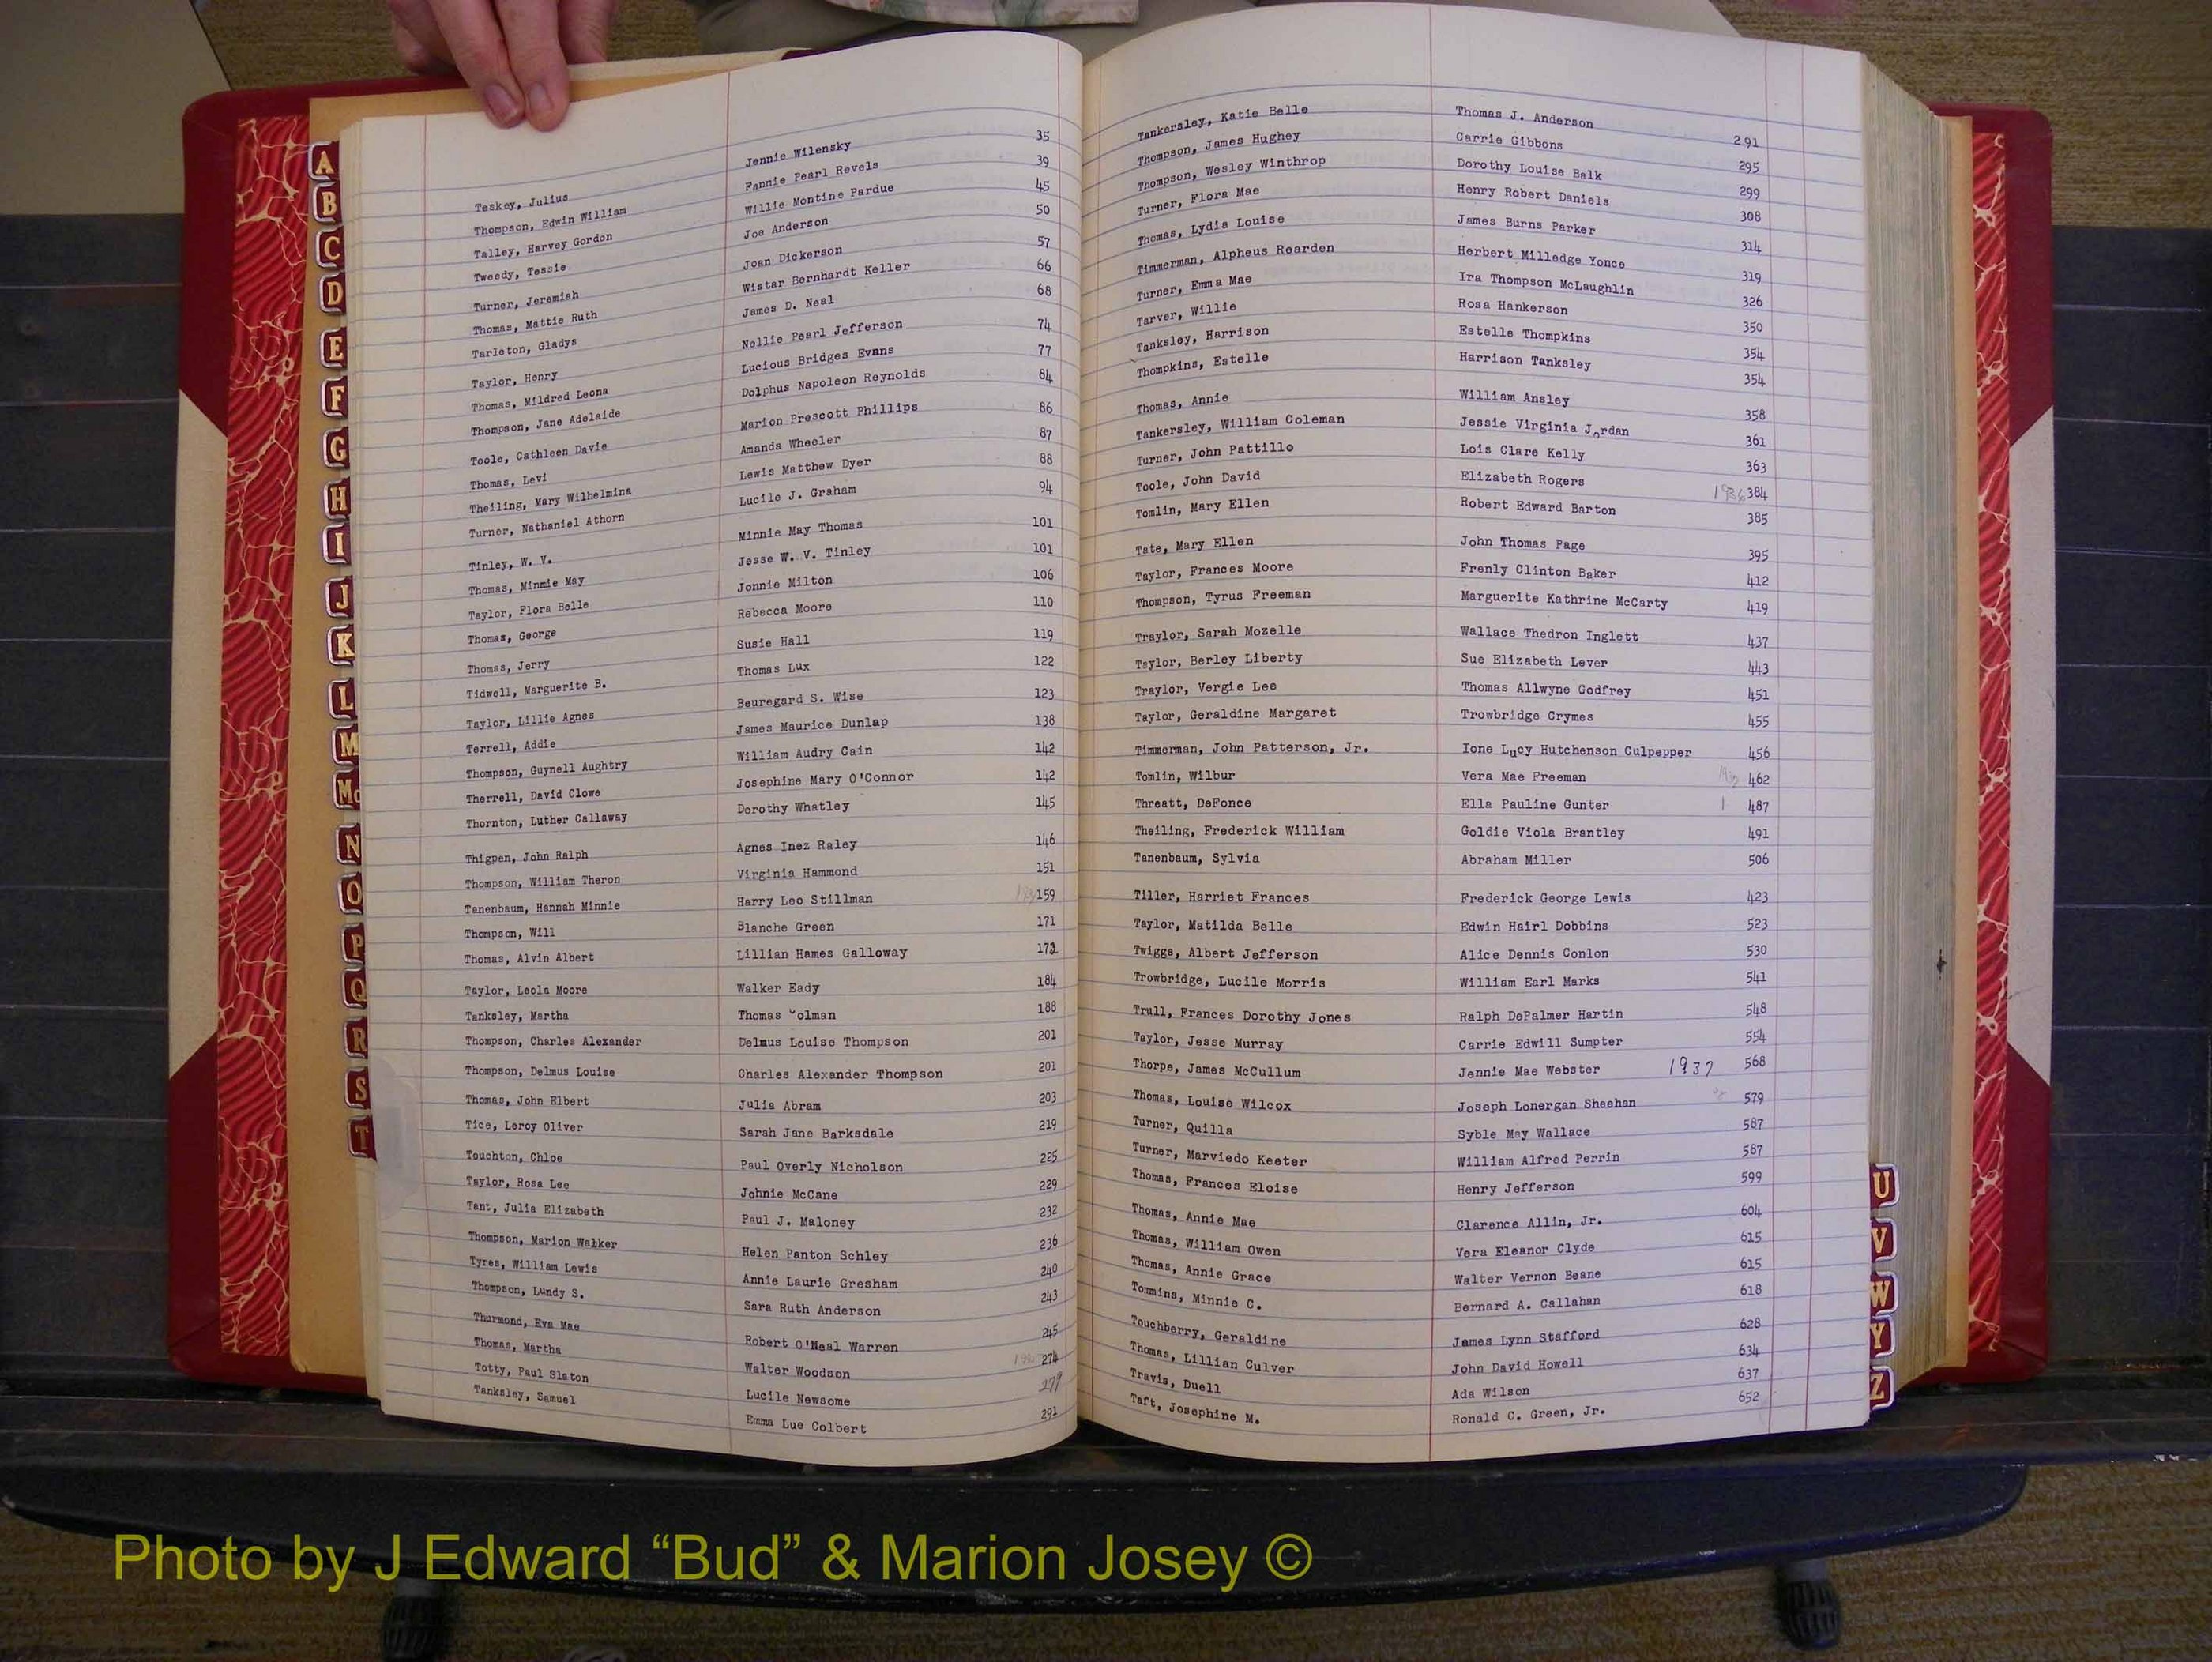 A
B
C
D
E
F
G
H
I
J
K
L
M
Mc
N
O
P
Q
R
S
T
Teskey, Julius Jennie Wilensky 35
Thompson, Edwin William Fannie Pearl Revels 39
Talley, Harvey Gordon Willie Montine Pardue 45
Tweedy, Tessie Joe Anderson 50
Turner, Jeremiah Joan Dickerson 57
Thomas, Mattie Ruth Wistar Bernhardt Keller 66
Tarleton, Gladys James D. Neal 68
Taylor, Henry Nellie Pearl Jefferson 74
Thomas, Mildred Leona Lucious Bridges Evans 77
Thompson, Jane Adelaide Dolphus Napoleon Reynolds 84
Toole, Cathleen Davie Marion Prescott Phillips 86
Thomas, Levi Amanda Wheeler 87
Theiling, Mary Wilhelmina Lewis Matthew Dyer 88
Turner, Nathaniel Athorn Lucile J. Graham 94
Tinley, W. V. Minnie May Thomas 101
Thomas, Minnie May Jesse W. V. Tinley 101
Taylor, Flora Belle Jonnie Milton 106
Thomas, George Rebecca Moore 110
Thomas, Jerry Susie Hall 119
Tidwell, Marguerite B. Thomas Lux 122
Taylor, Lillie Agnes Beuregard S. Wise 123
Terrell, Addie James Maurice Dunlap 138
Thompson, Guynell Aughtry William Audry Cain 142
Therrell, David Clowe Josephine Mary O'Connor 142
Thornton, Luther Callaway Dorothy Whatley 145
Thigpen, John Ralph Agnes Inez Raley 146
Thompson, William Theron Virginia Hammond 151
Tanenbaum, Hannah Minnie Harry Leo Stillman 159
Thompson, Will Blanche Green 171
Thomas, Alvin Albert Lillian Hames Galloway 173
Taylor, Leola Moore Walker Eady 184
Tanksley, Martha Thomas Colman 188
Thompson, Charles Alexander Delmus Louise Thompson 201
Thompson, Delmus Louise Charles Alexander Thompson 201
Thomas, John Elbert Julia Abram 203
Tice, Leroy Oliver Sarah Jane Barksdale 219
Touchton, Chloe Paul Overly Nicholson 225
Taylor, Rosa Lee Johnie McCane 229
Tant, Julia Elizabeth Paul J. Maloney 232
Thompson, Marion Walker Helen Panton Schley 236
Tyres, William Lewis Annie Laurie Gresham 240
Thompson, Lundy S. Sara Ruth Anderson 243
Thurmond, Eva Mae Robert O'Neal Warren 245
Thomas, Martha Walter Woodson 274
Totty, Paul Slaton Lucile Newsome 279
Tanksley, Samuel Emma Lue Colbert 291
Tankersley, Katie Belle Thomas J. Anderson 291
Thompson, James Hughey Carrie Gibbons 295
Thompson, Wesley Winthrop Dorothy Louise Balk 299
Turner, Flora Mae Henry Robert Daniels 308
Thomas, Lydia Louise James Burns Parker 314
Timmerman, Alpheus Rearden Herbert Milledge Yonce 319
Turner, Emma Mae Ira Thompson McLaughlin 326
Tarver, Willie Rosa Hankerson 350
Tanksley, Harrison Estelle Thompkins 354
Thompkins, Estelle Harrison Tanksley 354
Thomas, Annie William Ansley 358
Tankersley, William Coleman Jessie Virginia Jordan 361
Turner, John Pattillo Lois Clare Kelly 363
Toole, John David Elizabeth Rogers 1936 384
Tomlin, Mary Ellen Robert Edward Barton 385
Tate, Mary Ellen John Thomas Page 395
Taylor, Frances Moore Frenly Clinton Baker 412
Thompson, Tyrus Freeman Marguerite Kathrine McCarty 419
Traylor, Sarah Mozelle Wallace Thedron Inglett 437
Taylor, Berley Liberty Sue Elizabeth Lever 443
Traylor, Vergie Lee Thomas Allwyne Godfrey 451
Taylor, Geraldine Margaret Trowbridge Crymes 455
Timmerman, John Patterson, Jr. Ione Lucy Hutchenson Culpepper 456
Tomlin, Wilbur Vera Mae Freeman 462
Threatt, DeFonce Ella Pauline Gunter 487
Theiling, Frederick William Goldie Viola Brantley 491
Tanenbaum, Sylvia Abraham Miller 506
Tiller, Harriet Frances Frederick George Lewis 423
Taylor, Matilda Belle Edwin Hairl Dobbins 523
Twiggs, Albert Jefferson Alice Dennis Conlon 530
Trowbridge, Lucile Morris William Earl Marks 541
Trull, Frances Dorothy Jones Ralph DePalmer Hartin 548
Taylor, Jesse Murray Carrie Edwill Sumpter 554
Thorpe, James McCullum Jennie Mae Webster 1937 568
Thomas, Louise Wilcox Joseph Lonergan Sheehan 579
Turner, Quilla Syble May Wallace 587
Turner, Marviedo Keeter William Alfred Perrin 587
Thomas, Frances Eloise Henry Jefferson 599
Thomas, Annie Mae Clarence Allin, Jr. 604
Thomas, William Owen Vera Eleanor Clyde 615
Thomas, Annie Grace Walter Vernon Beane 615
Tommins, Minnie C. Bernard A. Callahan 618
Touchberry, Geraldine James Lynn Stafford 628
Thomas, Lillian Culver John David Howell 634
Travis, Duell Ada Wilson 637
Taft, Josephine M. Ronald C. Green, Jr. 652
U
V
W
Y
Z
Photo by J Edward “Bud” & Marion Josey ©